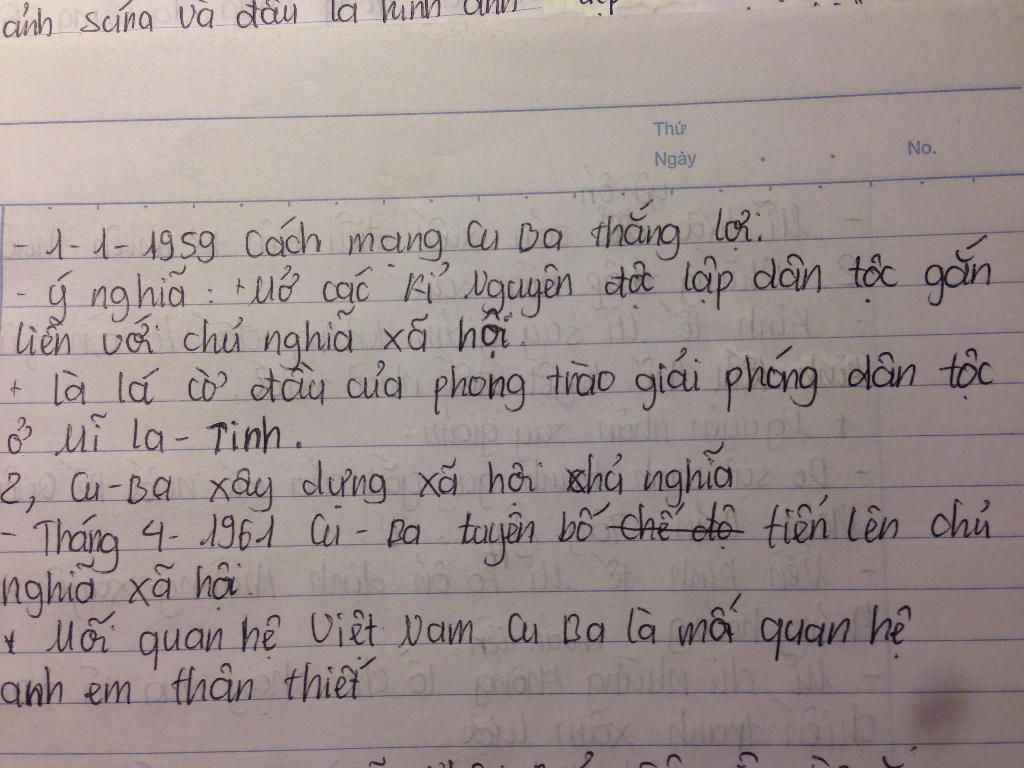 ảnh sáng và đầu là hình ảnh đẹp
Thứ
Ngày
No.
- 1-1-1959 Cách mạng Cu Ba thắng lợi.
- Ý nghĩa : + Mở các Kỉ Nguyên độc lập dân tộc gắn
liền với chủ nghĩa xã hội.
+ là lá cờ đầu của phong trào giải phóng dân tộc
ở Mĩ la-Tinh.
2, Cu-Ba xây dựng xã hội chủ nghĩa
- Tháng 4-1961 Cu-Ba tuyên bố chế độ tiến lên chủ
nghĩa xã hội.
* Mối quan hệ Việt Nam Cu Ba là mối quan hệ
anh em thân thiết